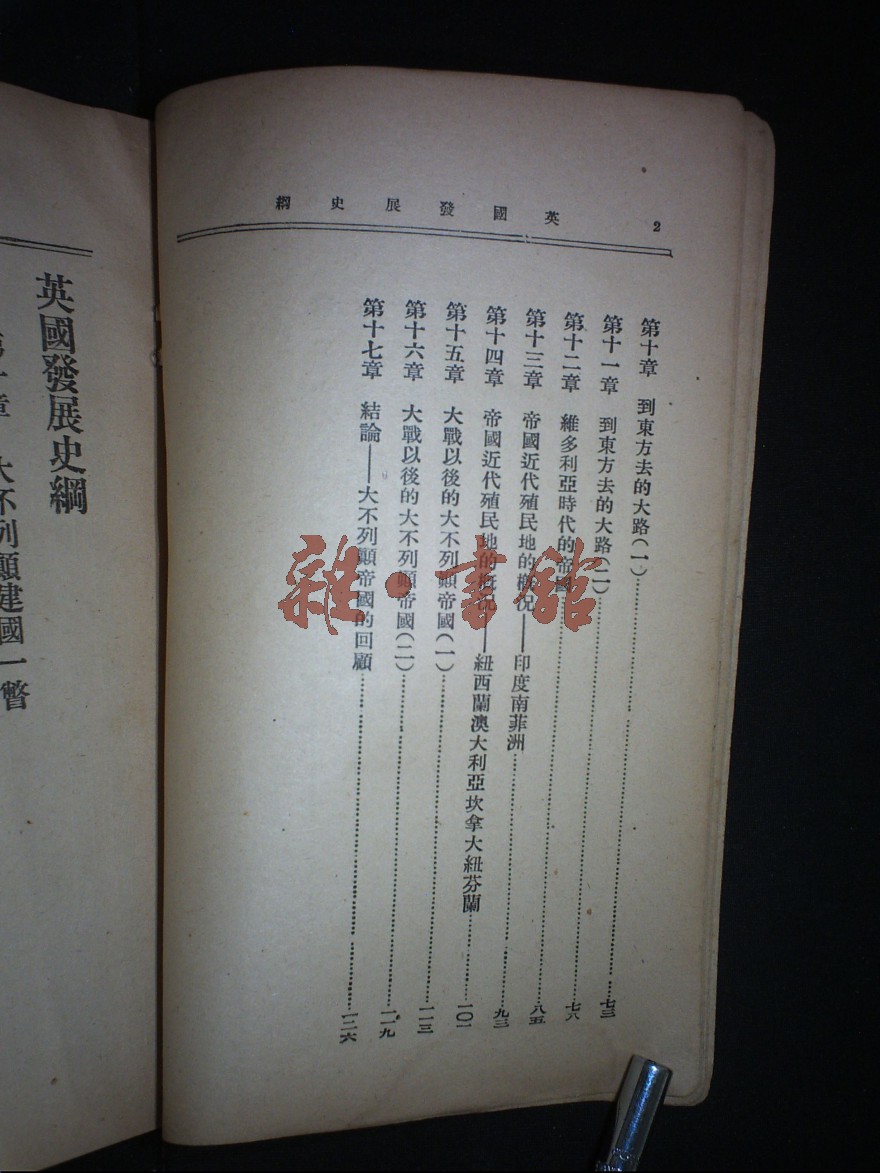 2
英國發展史綱
第十章 到東方去的大路(一)……七三
第十一章 到東方去的大路(二)……七八
第十二章 維多利亞時代的帝國……八五
第十三章 帝國近代殖民地的概况——印度南菲洲……九三
第十四章 帝國近代殖民地的概况——紐西蘭澳大利亞坎拿大紐芬蘭……一〇一
第十五章 大戰以後的大不列顚帝國(一)……一一三
第十六章 大戰以後的大不列顚帝國(二)……一一九
第十七章 結論——大不列顚帝國的回顧……一二六
英國發展史綱
章 大不列顚建國一瞥
雜·書館